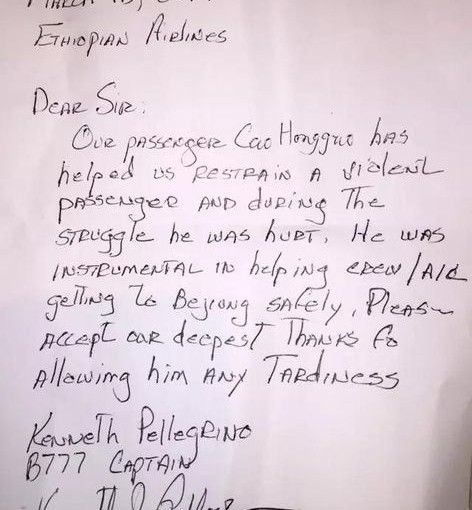 Ethiopian Airlines
Dear Sir:
Our passenger Cao Hongguo has
helped us restrain a violent
passenger and during the
struggle he was hurt. He was
instrumental in helping crew/A/C
getting to Bejiong safely. Please
accept our deepest thanks fo
allowing him any tardiness
Kenneth Pellegrino
B777 Captain